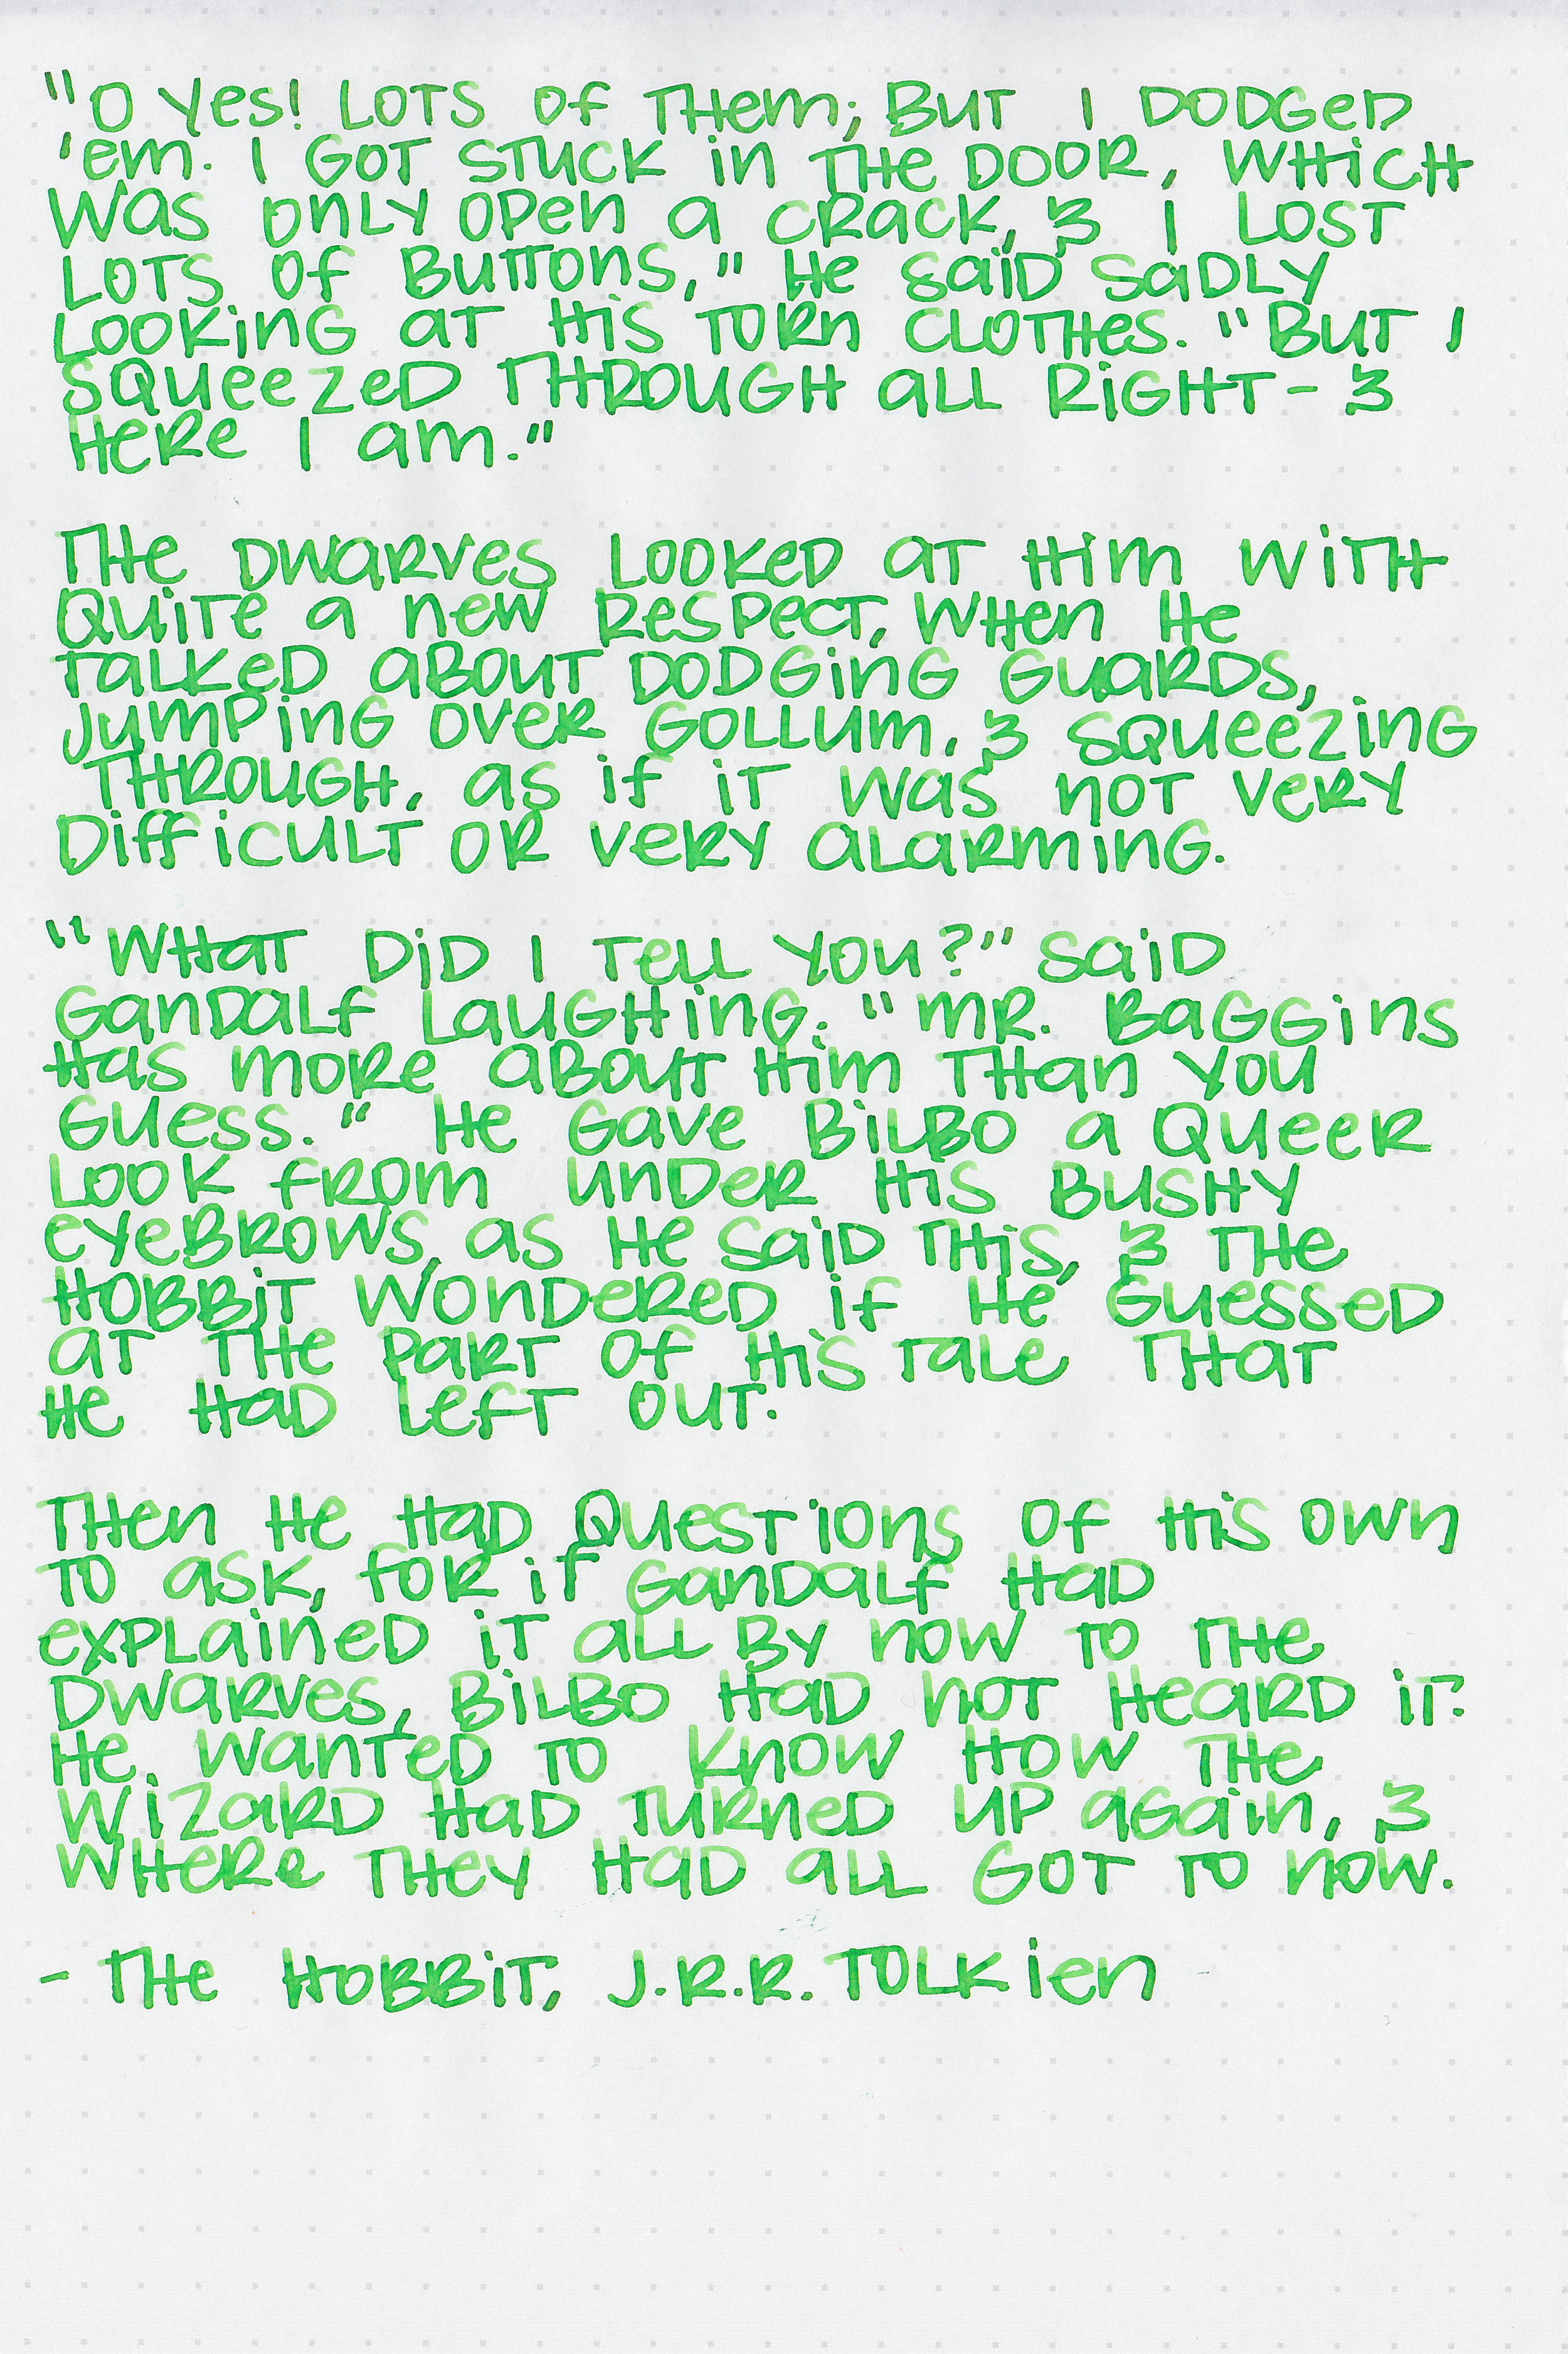 "O yes! Lots of them; but I dodged
'em. I got stuck in the door, which
was only open a crack, & I lost
lots of buttons," he said sadly
looking at his torn clothes. "But I
squeezed through all right - &
here I am."
The dwarves looked at him with
quite a new respect, when he
talked about dodging guards,
jumping over Gollum, & squeezing
through, as if it was not very
difficult or very alarming.
"What did I tell you?" said
Gandalf laughing. "Mr. Baggins
has more about him than you
guess." He gave Bilbo a queer
look from under his bushy
eyebrows, as he said this, & the
hobbit wondered if he guessed
at the part of his tale that
he had left out.
Then he had questions of his own
to ask, for if Gandalf had
explained it all by now to the
dwarves, Bilbo had not heard it.
He wanted to know how the
wizard had turned up again, &
where they had all got to now.
- The Hobbit, J.R.R. Tolkien